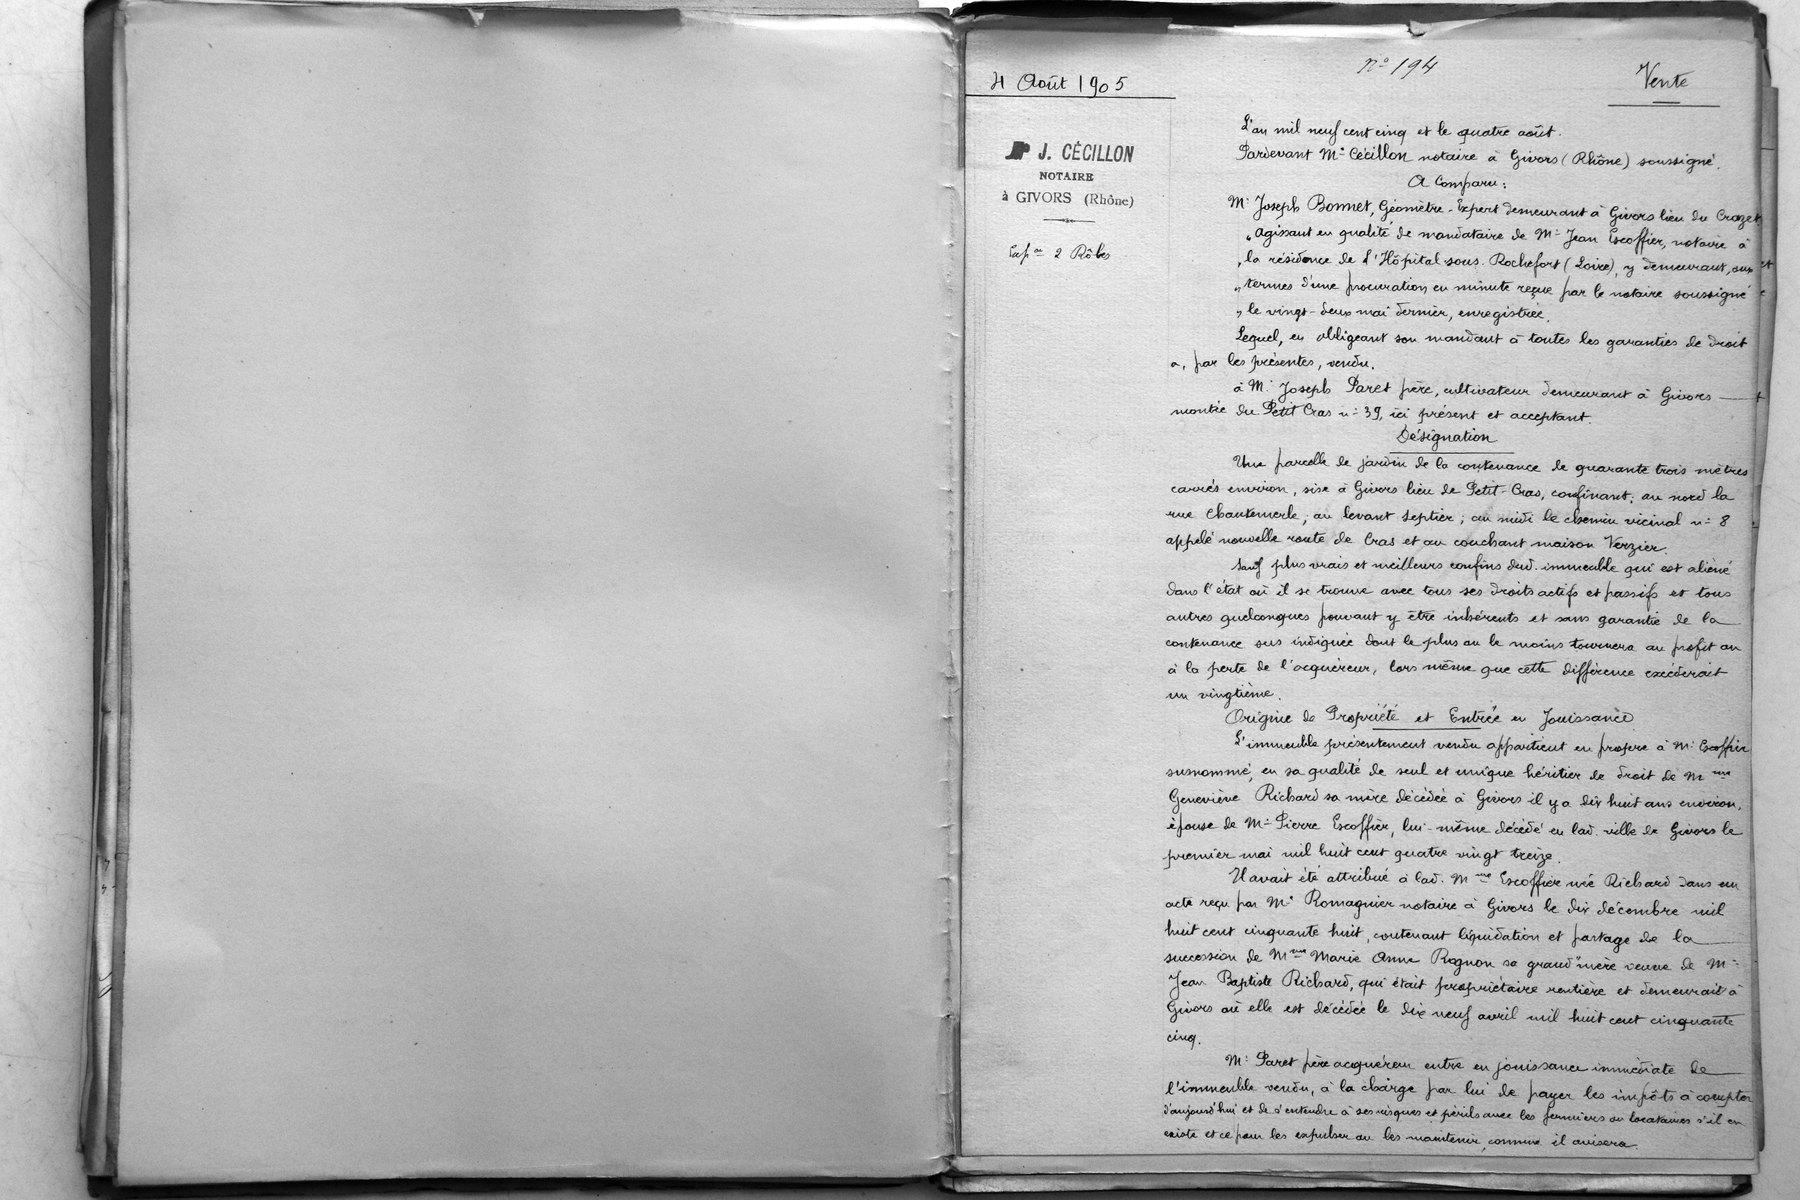 4 Août 1905
n° 194
Vente
J. CÉCILLON
NOTAIRE
à GIVORS (Rhône)
2 Rôles
L'an mil neuf cent cinq et le quatre août.
Pardevant Me Cécillon notaire à Givors (Rhône) soussigné.
A Comparu:
Mr Joseph Bonnet, Géomètre-Expert demeurant à Givors lieu du Crozet
„ Agissant en qualité de mandataire de Mr Jean Escoffier, notaire à
„ la résidence de L'Hôpital-sous-Rochefort (Loire), y demeurant, aux
„ termes d'une procuration en minute reçue par le notaire soussigné
„ le vingt-deux mai dernier, enregistrée.
Lequel, en obligeant son mandant à toutes les garanties de droit
a, par les présentes, vendu,
à Mr Joseph Paret père, cultivateur demeurant à Givors
montée du Petit Cras n° 39, ici présent et acceptant.
Désignation
Une parcelle de jardin de la contenance de quarante trois mètres
carrés environ, sise à Givors lieu de Petit-Cras, confinant: au nord la
rue Chantemerle; au levant Septier; au midi le chemin vicinal n° 8
appelé nouvelle route de Cras et au couchant maison Verzier.
Sauf plus vrais et meilleurs confins dud. immeuble qui est aliéné
dans l'état où il se trouve avec tous ses droits actifs et passifs et tous
autres quelconques pouvant y être inhérents et sans garantie de la
contenance sus indiquée dont le plus ou le moins tournera au profit ou
à la perte de l'acquéreur, lors même que cette différence excéderait
un vingtième.
Origine de Propriété et Entrée en Jouissance
L'immeuble présentement vendu appartient en propre à Mr Escoffier
susnommé, en sa qualité de seul et unique héritier de droit de Mme
Geneviève Richard sa mère décédée à Givors il y a dix huit ans environ,
épouse de Mr Pierre Escoffier, lui-même décédé en lad. ville de Givors le
premier mai mil huit cent quatre vingt treize.
Il avait été attribué à lad. Mme Escoffier née Richard dans un
acte reçu par Me Romagnier notaire à Givors le dix décembre mil
huit cent cinquante huit, contenant liquidation et partage de la
succession de Mme Marie Anne Rognon sa grand'mère veuve de Mr
Jean Baptiste Richard, qui était propriétaire rentière et demeurait à
Givors où elle est décédée le dix neuf avril mil huit cent cinquante
cinq.
Mr Paret père acquéreur entre en jouissance immédiate de
l'immeuble vendu, à la charge par lui de payer les impôts à compter
d'aujourd'hui et de s'entendre à ses risques et périls avec les fermiers ou locataires s'il en
existe et ce pour les expulser ou les maintenir comme il avisera